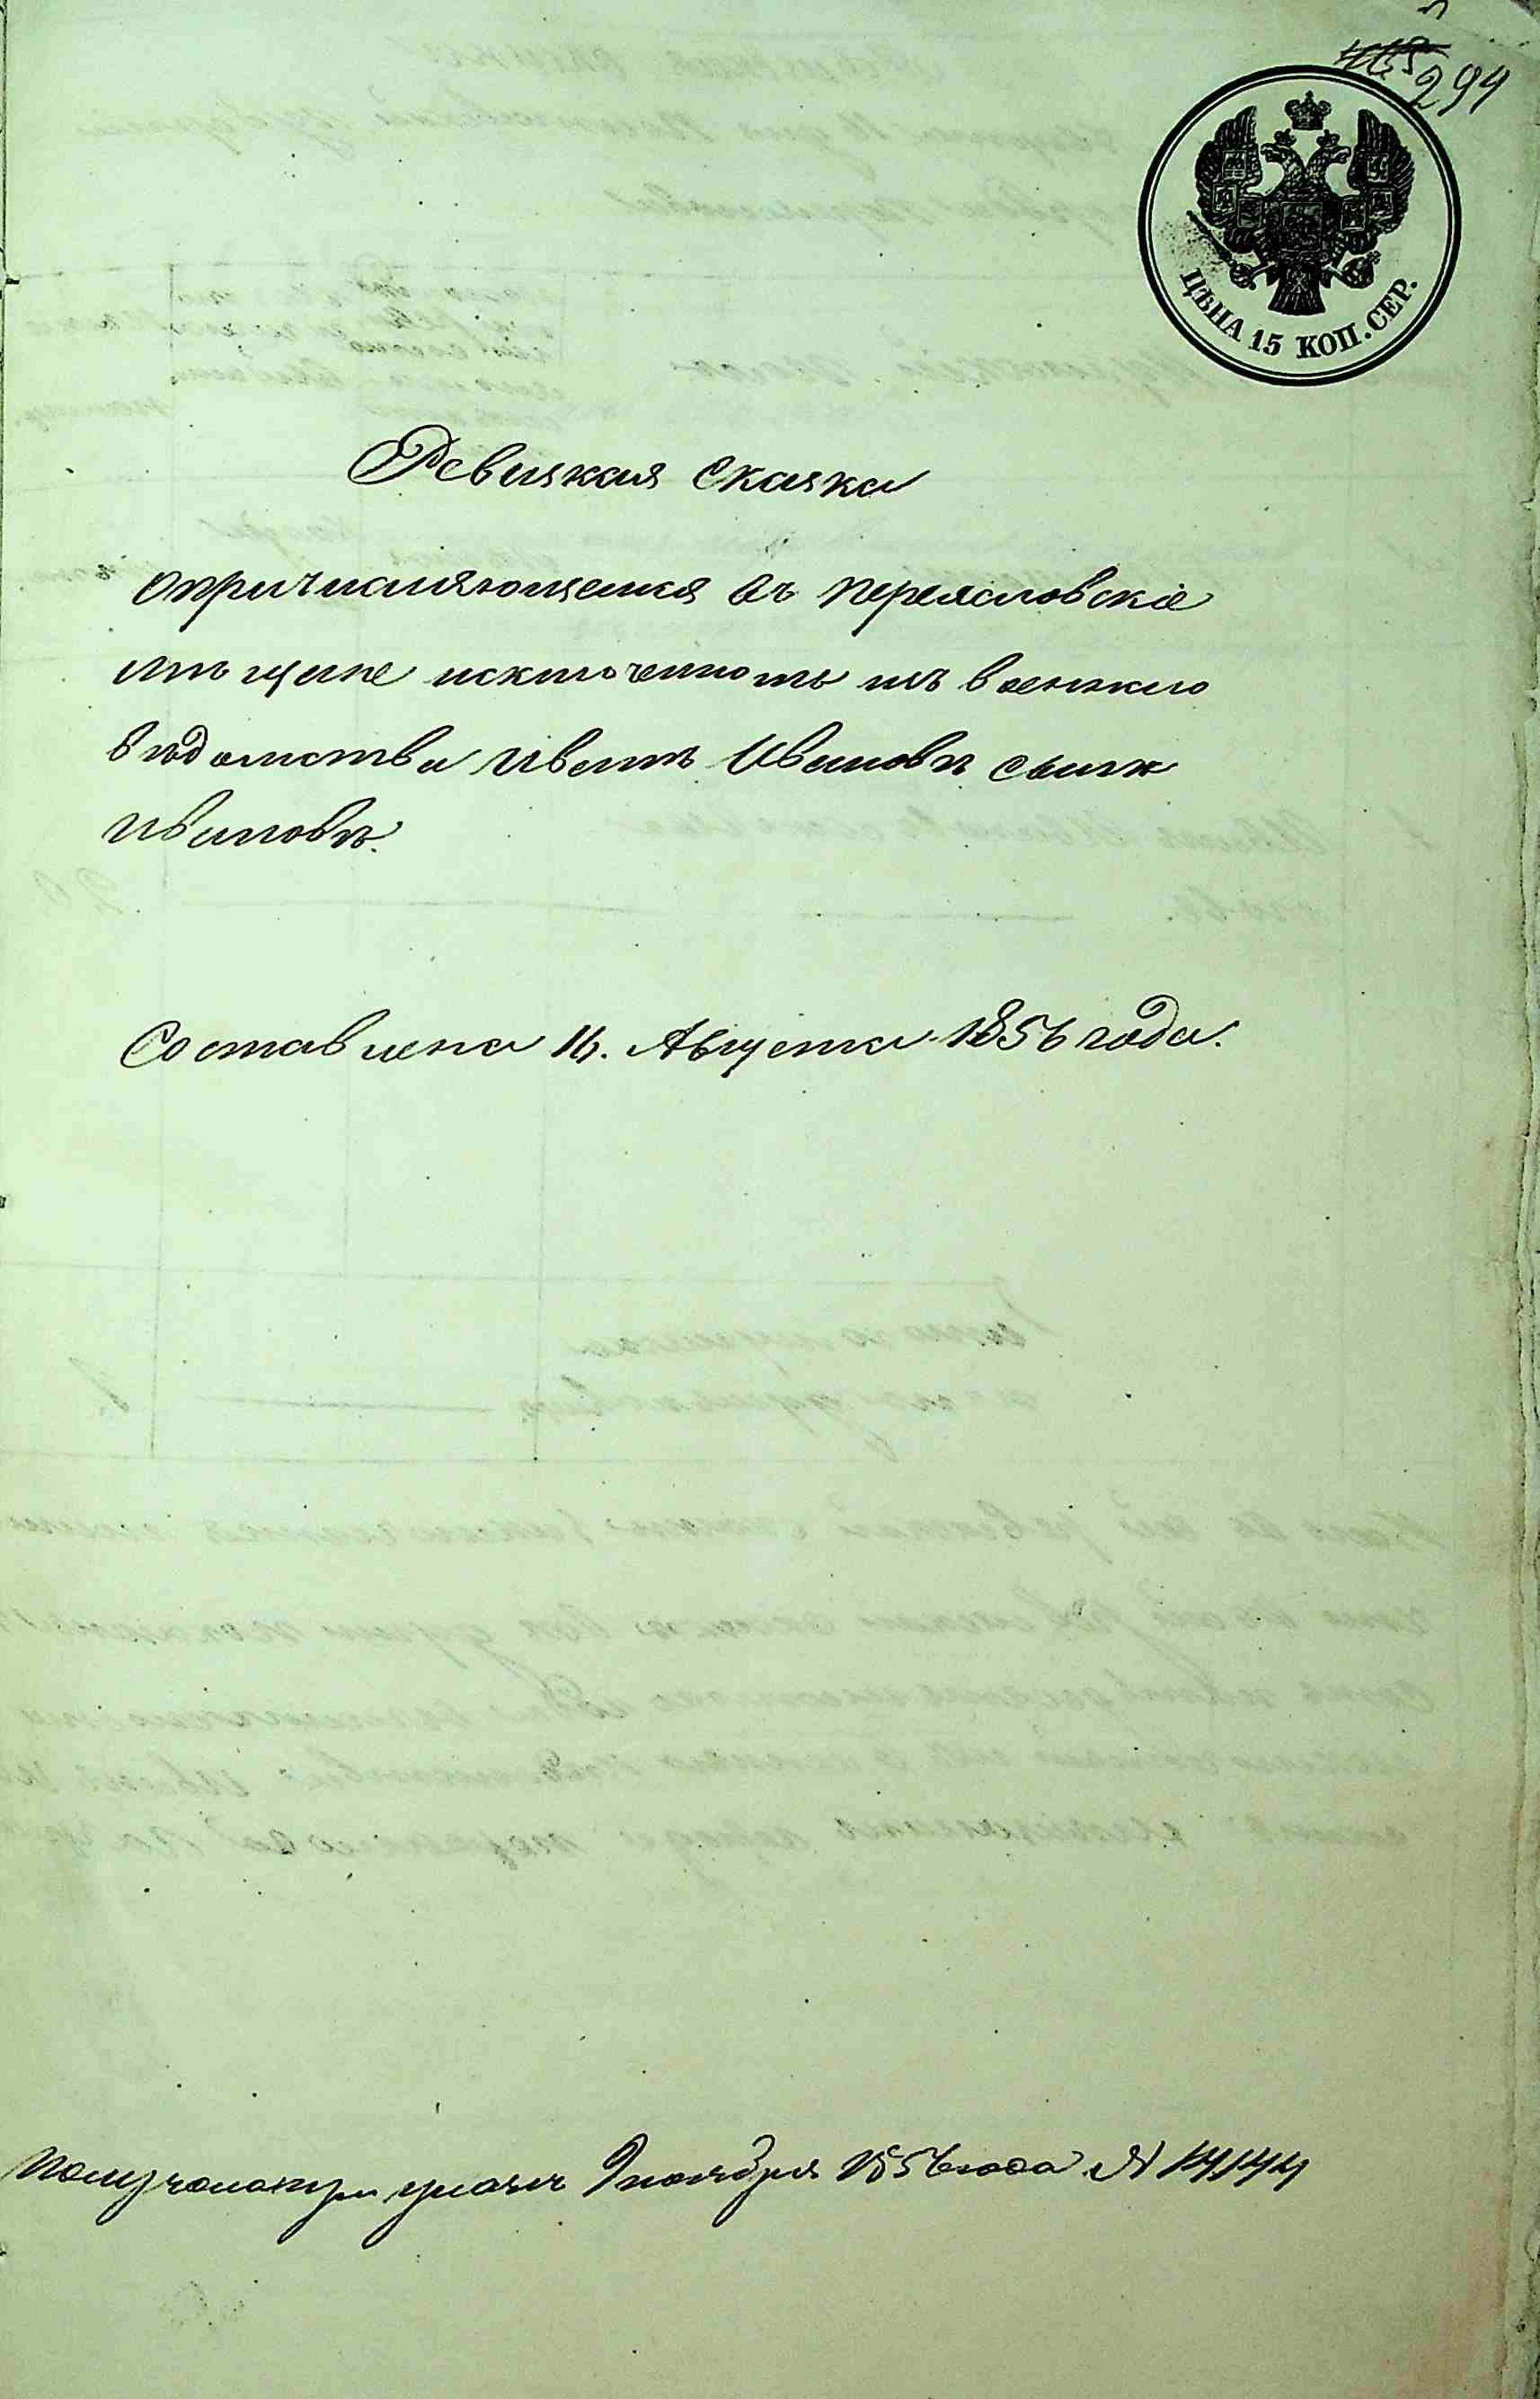 294
ЦѢНА 15 КОП. СЕР.
Ревизкая Сказка
опричисляющемся въ переясловскіе
мѣщане исключенномъ изъ военнаго
вѣдомства Иванъ Ивановъ сынъ
Ивановъ.
Составлена 16. Августа 1856 года.
получена при указѣ 9 ноября 1856 года №